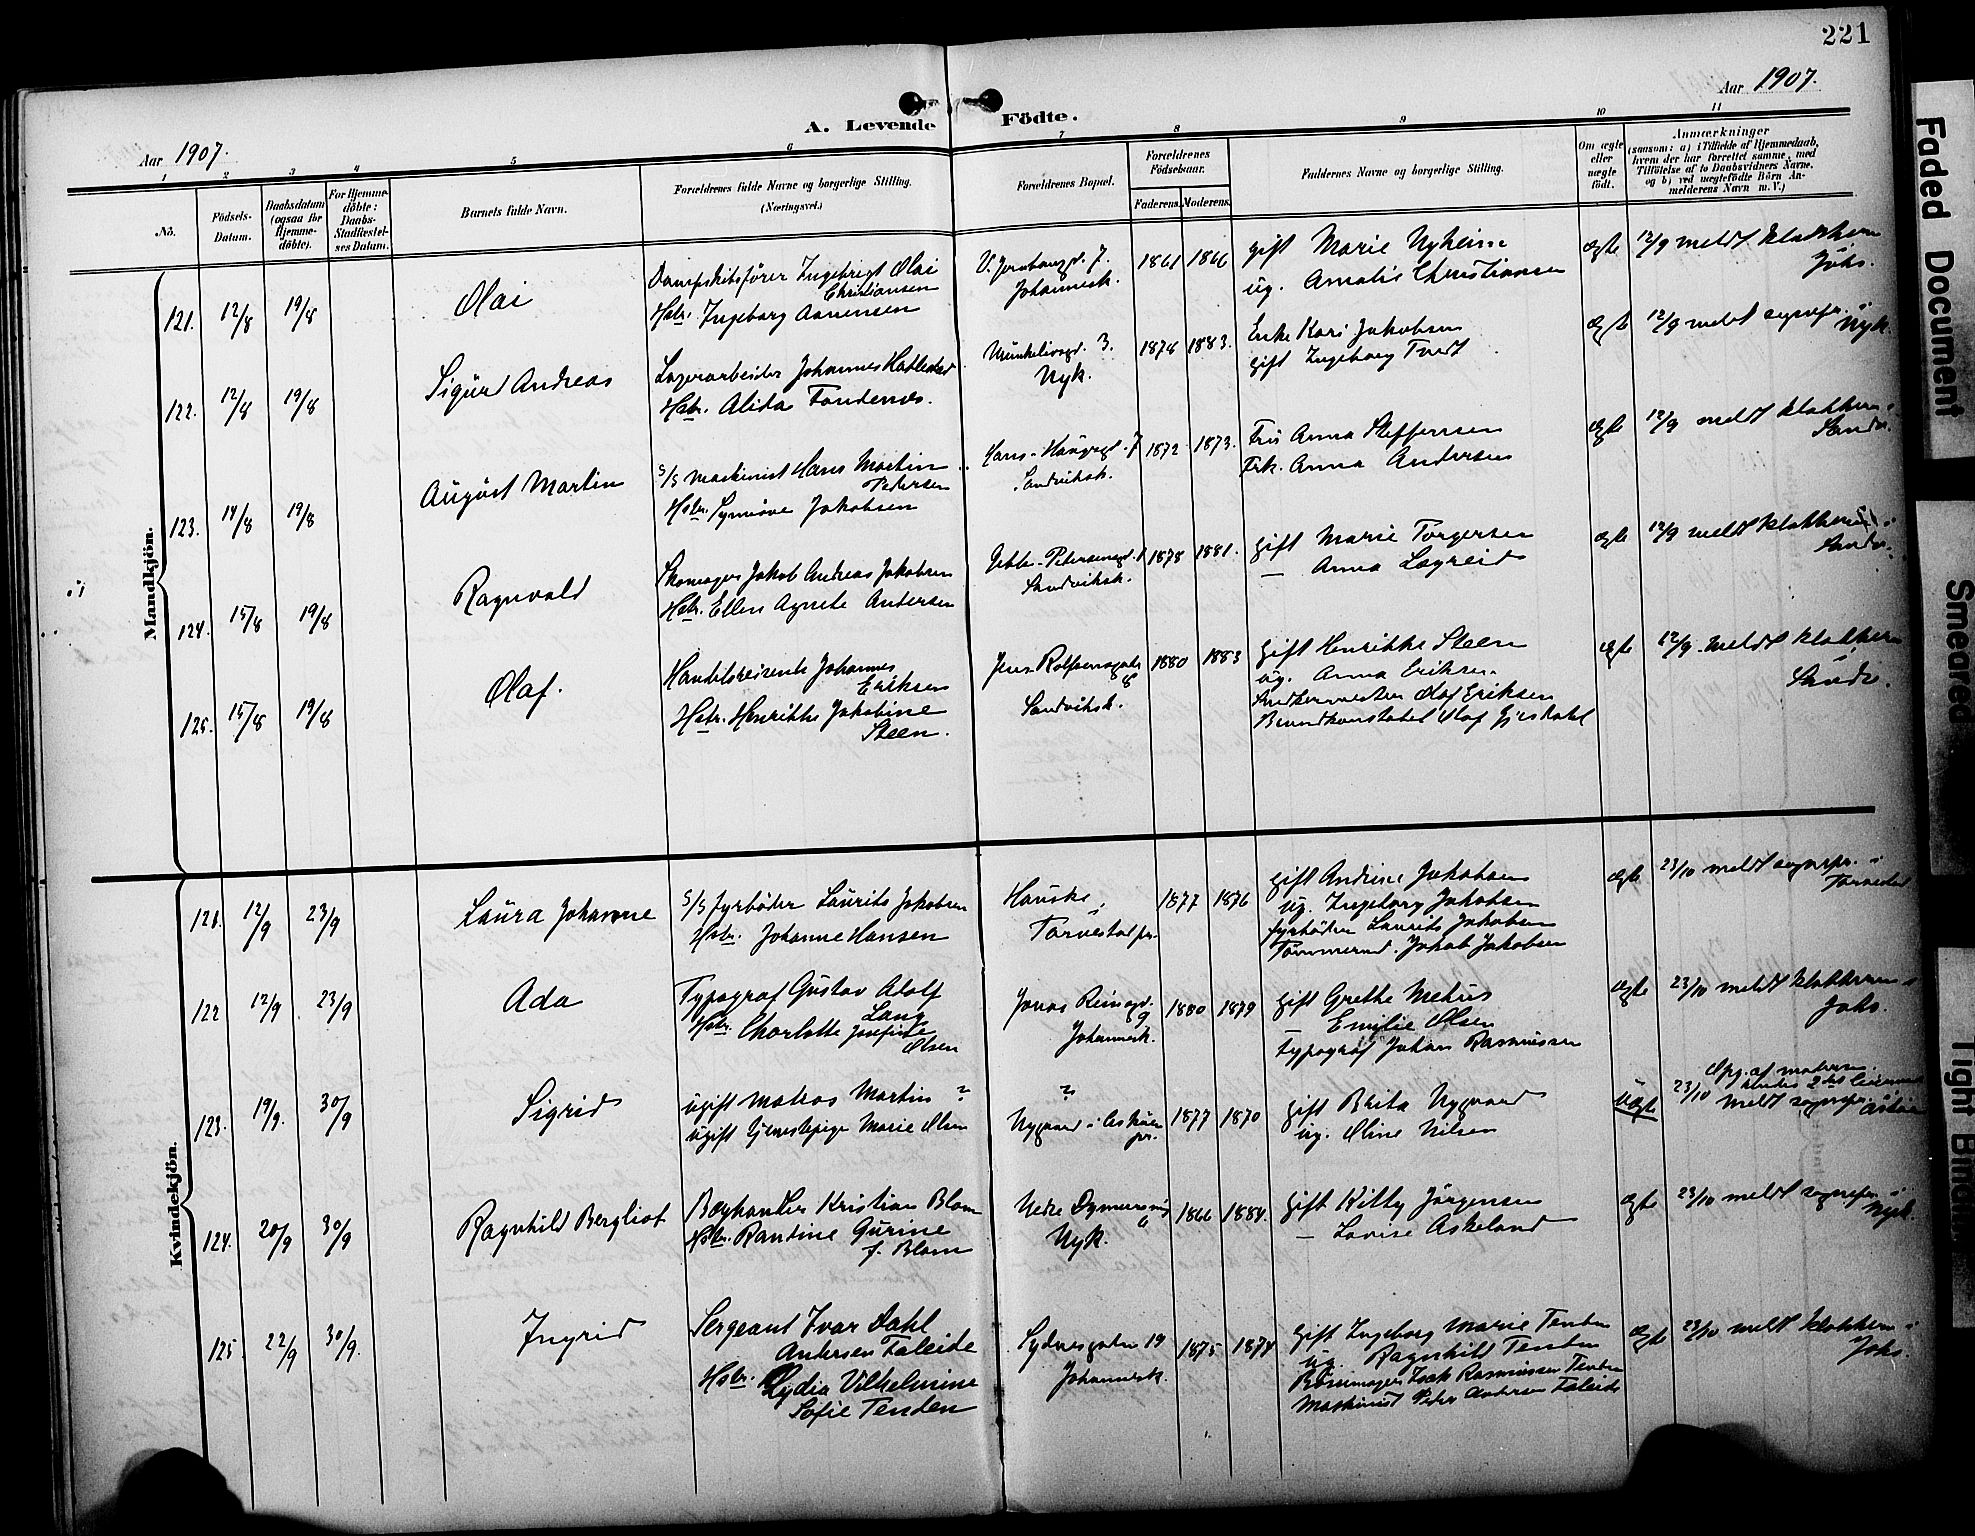 221
Aar 1907.
Aar 1907.
A. Levende Fødte.
1 2 3 4 5 6 7 8 9 10 11
No.
Fødsels-Datum.
Daabsdatum (ogsaa for Hjemmedøbte).
For Hjemmedøbte: Daabs-Stadfæstelses Datum.
Barnets fulde Navn.
Forældrenes fulde Navne og borgerlige Stilling.
(Næringsvei.)
Forældrenes Bopæl.
Forældrenes Fødselsaar.
Faderens. Moderens.
Faddernes Navne og borgerlige Stilling.
Om ægte eller uægte født.
Anmærkninger
(saasom: a) i Tilfælde af Hjemmedaab, hvem der har forrettet samme, med Tilføielse af to Daabsvidners Navne, og b) ved uægtefødte Børn Anmelderens Navn m. V.)
Mandkjön.
121. 12/8 19/8 Olai
Dampskibsfører Ingebrigt Olai
Christiansen
Hstr. Ingeborg Aanensen
V. Jernbanegd. 7.
Johannesk.
1861 1866
gift Marie Nyheim
ug. Amalie Christiansen
ægte
12/9 meldt klokkeren
Johs.
122. 12/8 19/8 Sigurd Andreas
Lagerarbeider Johannes Hatlestad
Hstr. Alida Tondenes.
3.
Nyk.
1878 1883.
Enke Kari Jakobsen
gift Ingeborg Tvedt
ægte
12/9 meldt sognepr. i
Nyk.
123. 14/8 19/8 August Martin
S/S maskinist Hans Martin
Pedersen
Hstr. Synnøve Jakobsen
Hans-Haugegd. 7
Sandviksk.
1872 1873.
Fru Anna Steffensen
Frk. Anna Andersen
ægte
12/9 meldt klokkeren i
Sandv.
124. 15/8 19/8 Ragnvald
Skomager Jakob Andreas Jakobsen
Hstr. Ellen Agnete Andersen
Gebble-Pedersensgd. 1
Sandviksk.
1878 1881.
gift Marie Torgersen
— Anna Løgreid
ægte
12/9 meldt klokkeren i
Sandv.
125. 15/8 19/8 Olaf.
Handelsreisende Johannes
Eriksen
Hstr. Henrikke Jakobine
Steen.
Jens Rolfsensgade
8
Sandviksk.
1880 1883
gift Henrikke Steen
ug. Anna Eriksen
Snedkermester Olaf Eriksen
Brandkonstabel Olaf Gjesdahl
ægte
12/9. meldt klokkeren
Sandv.
Kvindekjön.
121. 12/9 23/9 Laura Johanne
S/S fyrbøder Laurits Jakobsen
Hstr. Johanne Hansen
Hauske,
Torvestad pr.
1877 1876
gift Andrine Jakobsen
ug. Ingeborg Jakobsen
fyrbøder Laurits Jakobsen
Tømmermd. Jakob Jakobsen
ægte
23/10 meldt sognepr. i
Torvestad
122 12/9 23/9 Ada
Typograf Gustav Adolf
Lang
Hstr. Charlotte Josefine
Olsen
Jonas Reinsgd.
9
Johannesk.
1880 1879
gift Grethe Mehus
Emilie Olsen
typograf Johan Rasmussen
ægte
23/10 meldt klokkeren i
Johs.
123. 19/9. 30/9 Sigrid
ugift matros Martin ?
ugift tjenestepige Marie Olsen
?
Nygaard i Askøen
pr.
1877 1870
gift Brita Nygaard
ug. Oline Nilsen
uægte
Opg. af moderen.
23/10 meldt sognepr. i Askøen
124. 20/9 30/9 Ragnhild Bergliot
Bøghandler Kristian Blom
Hstr. Rantine Gurine
f. Blom
Nedre Dynnersvei
6
Nyk.
1866 1884.
gift Kitty Jørgensen
— Lovise Askeland
ægte
23/10 meldt sognepr. i
Nyk.
125. 22/9 30/9. Ingrid
Sergeant Ivar Dahl
Andersen Faleide
Hstr. Lydia Vilhelmine
Sofie Tenden
Sydnesgaten 19
Johannesk.
1875 1874
gift Ingeborg Marie Tenden
ug. Ragnhild Tenden
Bøssemager Isak Rasmussen Tenden
Maskinist Peder Andersen Faleide
ægte
23/10 meldt klokkeren i
Johs.
Faded Document
Smeared
Tight Binding